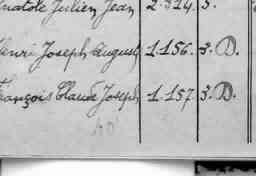 Anatole Julien Jean 2.314. 3.
Henri Joseph August 1.156. 3. D.
François Claude Joseph 1.157. 3. D.